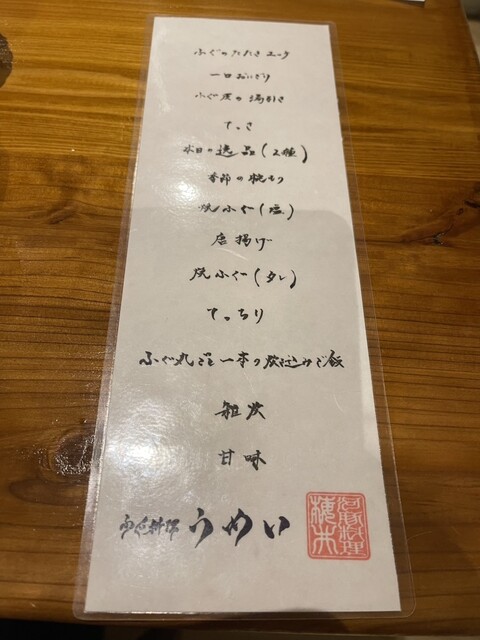 ふぐのたたきユッケ
一口おにぎり
ふぐ皮の湯引き
てっさ
本日の逸品(2種)
季節の焼もの
焼ふぐ(塩)
唐揚げ
焼ふぐ(タレ)
てっちり
ふぐ丸ごと一本の炊込みご飯
雑炊
甘味
ふぐ料理 うめい
河豚料理